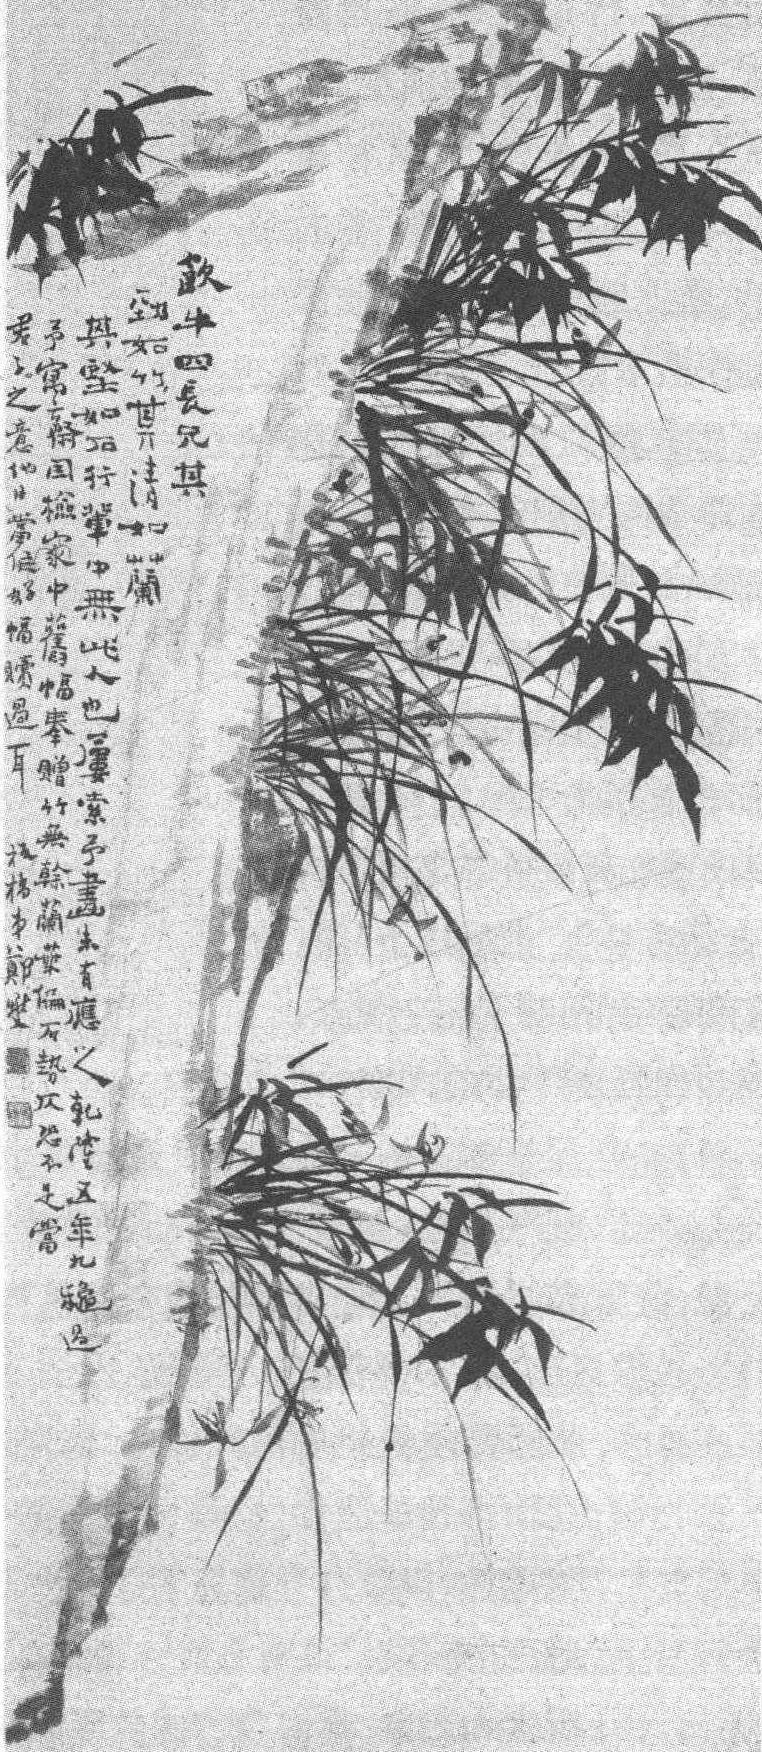 歗牛四長兄其
勁如竹其清如蘭
其堅如石行輩中無此人也屢索予畫未有應之乾隆五年九穐過
予寓齋因檢家中舊幅奉贈竹無幹蘭葉偏石勢仄恐不足當
君子之意他日當作好幅贖過耳 板橋弟鄭燮